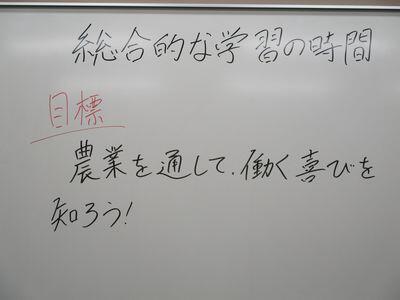 総合的な学習の時間
目標
農業を通して、働く喜びを
知ろう!